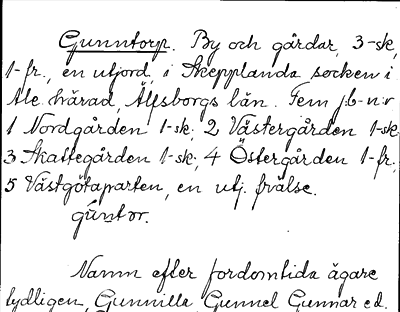 Gunntorp. By och gårdar, 3-sk,
1-fr, en utjord, i Skepplanda socken i
Ale härad, Älfsborgs län. Fem jb-n:r
1 Nordgården 1-sk; 2 Västergården 1-sk
3 Skattegården 1-sk; 4 Östergården 1-fr;
5 Västgötaparten, en utj. frälse.
gúntor.
Namn efter fordomtida ägare
tydligen, Gunnilla, Gunnel Gunnar ed.